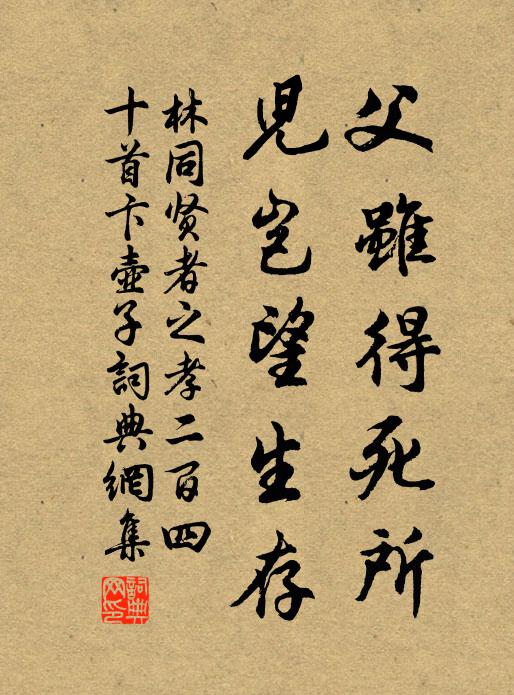 父雖得死所
兒豈望生存
林同贤者之孝二百四
十首卞壺子詞典網集
詞典网印